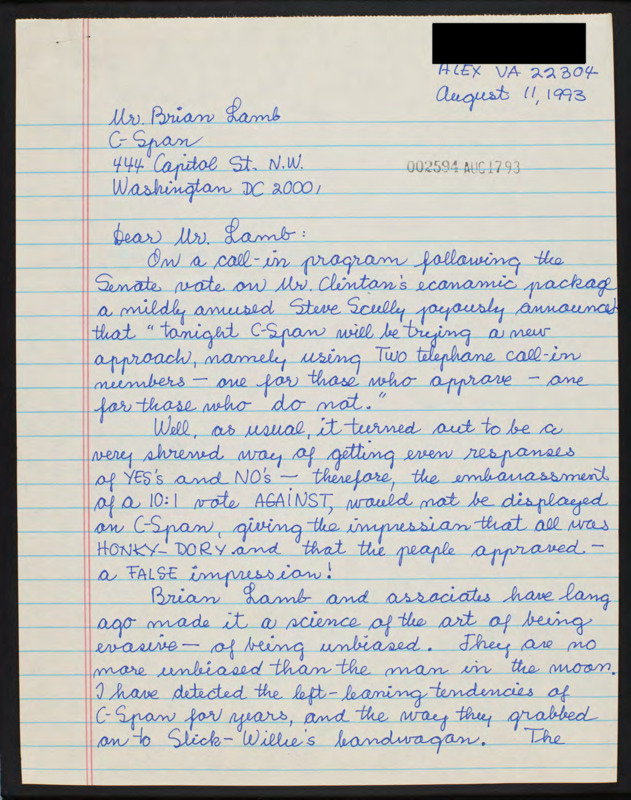 ALEX VA 22304
August 11, 1993
Mr. Brian Lamb
C-Span
444 Capitol St. N.W.
Washington DC 20001
002594 AUG1793
Dear Mr. Lamb:
On a call-in program following the
Senate vote on Mr. Clinton's economic package
a mildly amused Steve Scully joyously announced
that "tonight C-Span will be trying a new
approach, namely using TWO telephone call-in
numbers — one for those who approve — one
for those who do not."
Well, as usual, it turned out to be a
very shrewd way of getting even responses
of YES's and NO's — therefore, the embarrassment
of a 10:1 vote AGAINST, would not be displayed
on C-Span, giving the impression that all was
HONKY-DORY and that the people approved. —
a FALSE impression!
Brian Lamb and associates have long
ago made it a science of the art of being
evasive — of being unbiased. They are no
more unbiased than the man in the moon.
I have detected the left-leaning tendencies of
C-Span for years, and the way they grabbed
on to Slick-Willie's bandwagon. The